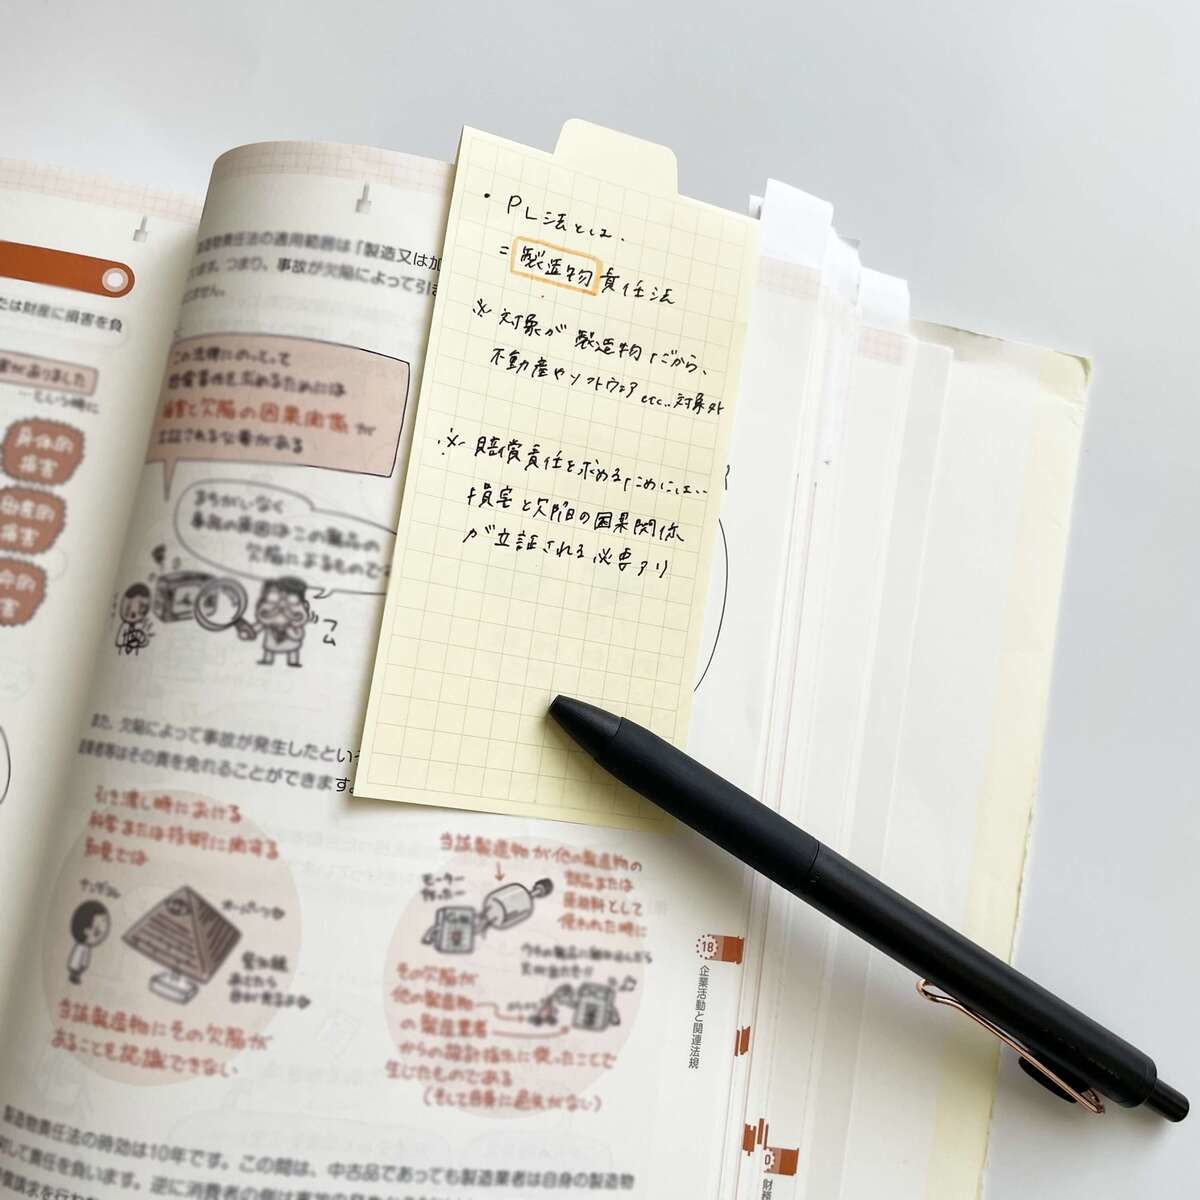 たは財産に損害を負
害がありました
…という時に
身体的
損害
財産的
損害
製造物責任法の適用範囲は「製造又は加
ます。つまり、事故が欠陥によって引き
ません。
この法律にのっとって
損害賠償を求めるためには
損害と欠陥の因果関係が
立証される必要がある
まちがいなく
事故の原因はこの製品の
欠陥によるもので
フム
・PL法とは、
=製造物責任法
※対象が製造物だから、
不動産やソフトウェアetc..対象外
※賠償責任を求めるためには…
損害と欠陥の因果関係
が立証される必要アリ
また、欠陥によって事故が発生したという
造業者等はその責を免れることができます。
引き渡し時における
科学または技術に関する
知見では
オーパーツ
当該製造物にその欠陥が
あることを認識できない
当該製造物が他の製造物の
部品または
原材料として
使われた時に
モーター
作ったー
その欠陥が
他の製造物
の製造業者
からの設計指示に従ったことで
生じたものである
(そして自身に過失がない)
18
企業活動と関連法規
製造物責任法の時効は10年です。この間は、中古品であっても製造業者は自身の製造物
して責任を負います。逆に消費者の側は事故の発生
0
財務